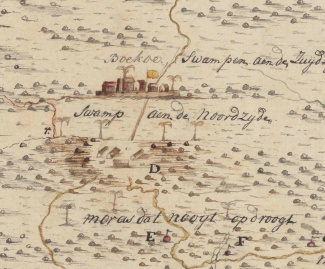 Boekoe Swampen aen de Zuyd
Swamp aen de Noordzyde
r.
D
moras dat nooyt opdroogt
E
F